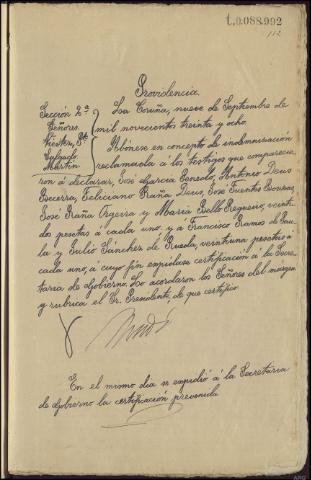 1,0.088.992
112
Providencia
Sección 2ª
Señores
Viestez, Pte
Salgado
Martin
La Coruña, nueve de Septiembre de
mil novecientos treinta y ocho.
Abónese en concepto de indemnización
reclamada a los testigos que comparecie-
ron á declarar, José Garcia Gonzalo, Antonio Deus
Becerra, Feliciano Praña Deus, José Fuentes
José Praña y Maria Bello Regueiro, veinti-
dos pesetas á cada uno y a Francisco Ramos de Pau-
la y Julio Sánchez de Rueda, veintiuna pesetas á
cada uno, a cuyo fin expidase certificación á la Secre-
taria de Gobierno. Lo acordaron los Señores del margen
y rubrica el Sr. Presidente, de que certifico.
En el mismo dia se expidió á la Secretaria
de Gobierno la certificación prevenida